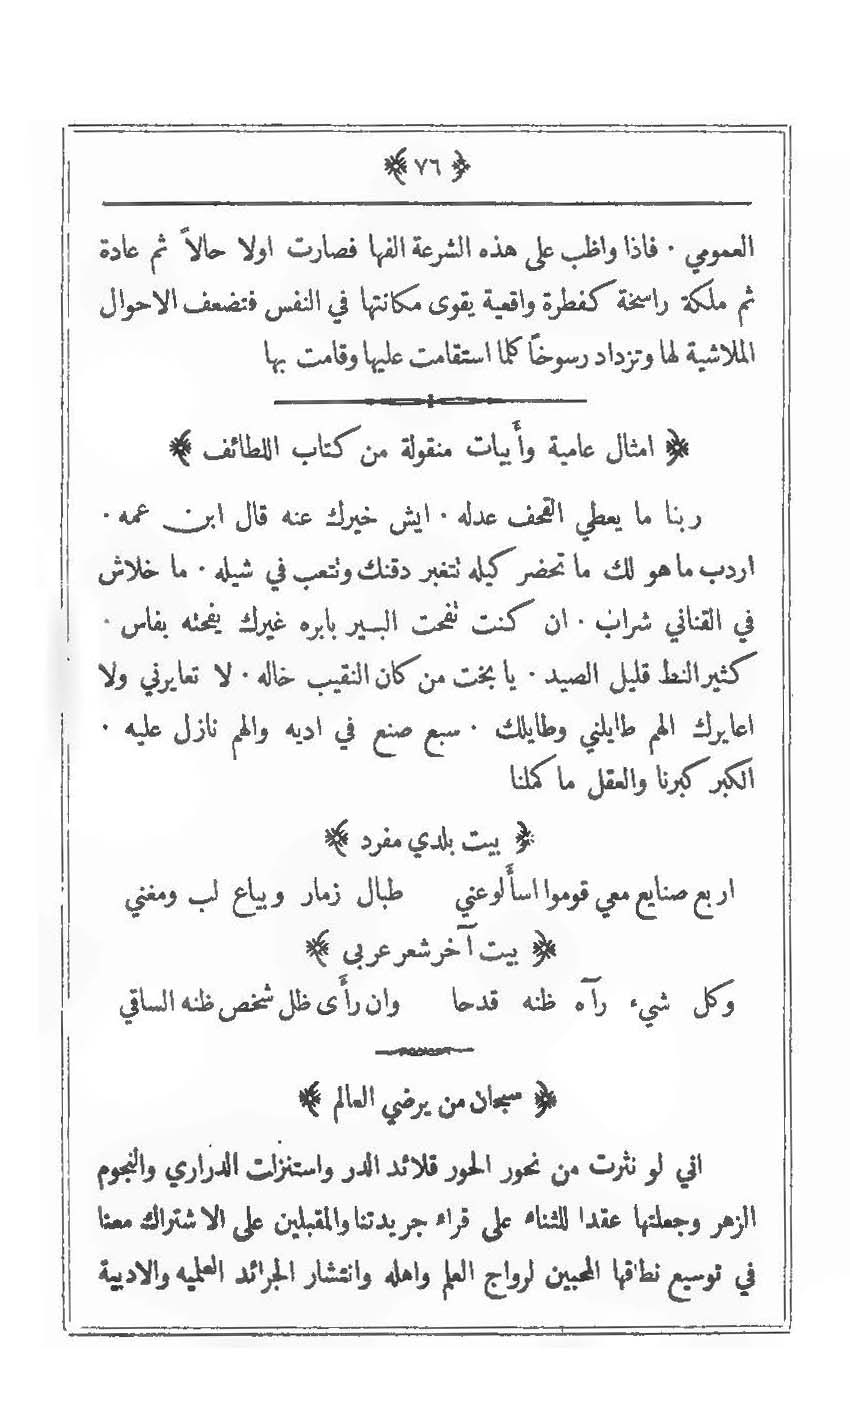 ﴿ ٧٦ ﴾
العمومي · فاذا واظب على هذه الشرعة الفها فصارت اولا حالاً ثم عادة
ثم ملكة راسخة كفطرة واقعية يقوى مكانتها في النفس فتضعف الاحوال
الملاشية لها وتزداد رسوخاً كلما استقامت عليها وقامت بها
﴿ امثال عامية وأبيات منقولة من كتاب اللطائف ﴾
ربنا ما يعطي القحف عدله · ايش خيرك عنه قال ابن عمه ·
اردب ما هو لك ما تحضر كيله لتغبر دقنك ولتعب في شيله · ما خلاش
في القناني شراب · ان كنت تفحت البير بابره غيرك يفحته بفاس ·
كثير النط قليل الصيد · يا بخت من كان النقيب خاله · لا تعايرني ولا
اعايرك الهم طايلني وطايلك · سبع صنع في اديه والهم نازل عليه ·
الكبر كبرنا والعقل ما كملنا
﴿ بيت بلدي مفرد ﴾
اربع صنايع معي قوموا اسألو عني طبال زمار وبياع لب ومغني
﴿ بيت آخر شعر عربي ﴾
وكل شيء رآه ظنه قدحا وان رأى ظل شخص ظنه الساقي
﴿ سبحان من يرضي العالم ﴾
اني لو نثرت من نحور الحور قلائد الدر واستنزلت الدراري والنجوم
الزهر وجعلتها عقدا للثناء على قراء جريدتنا والمقبلين على الاشتراك معنا
في توسيع نطاقها المحبين لرواج العلم واهله وانتشار الجرائد العلميه والادبية